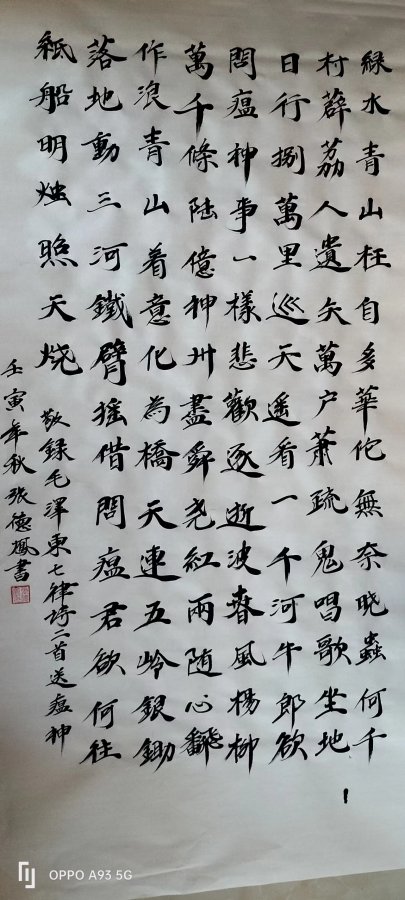 綠水青山枉自多華佗無奈曉蟲何千
村薜荔人遺矢萬户蕭疏鬼唱歌坐地
日行捌萬里巡天遥看一千河牛郎欲
問瘟神事一樣悲歡逐逝波春風楊柳
萬千條陆億神州盡舜尧紅雨随心翻
作浪青山着意化為橋天連五岭銀鋤
落地動三河鐵臂摇借問瘟君欲何往
紙船明烛照天烧
敬錄毛泽東七律詩二首送瘟神
壬寅年秋张德鳳書
OPPO A93 5G